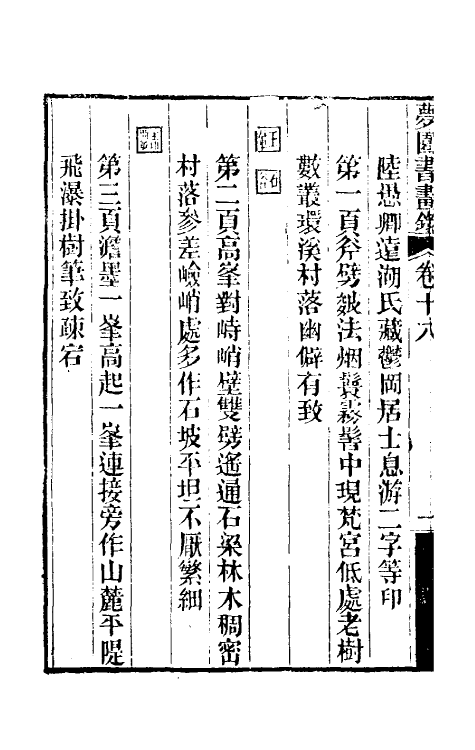 夢園書畫錄 卷十八
陸愚卿遠湖氏藏鬱岡居士息游二字等印
第一頁斧劈皴法烟鬟霧鬢中現梵宮低處老樹
數叢環溪村落幽僻有致
第二頁高峯對峙峭壁雙劈遙通石梁林木稠密
村落參差嶮峭處多作石坡平坦不厭繁細
第三頁澹墨一峯高起一峯連接旁作山麓平隄
飛瀑掛樹筆致疎宕